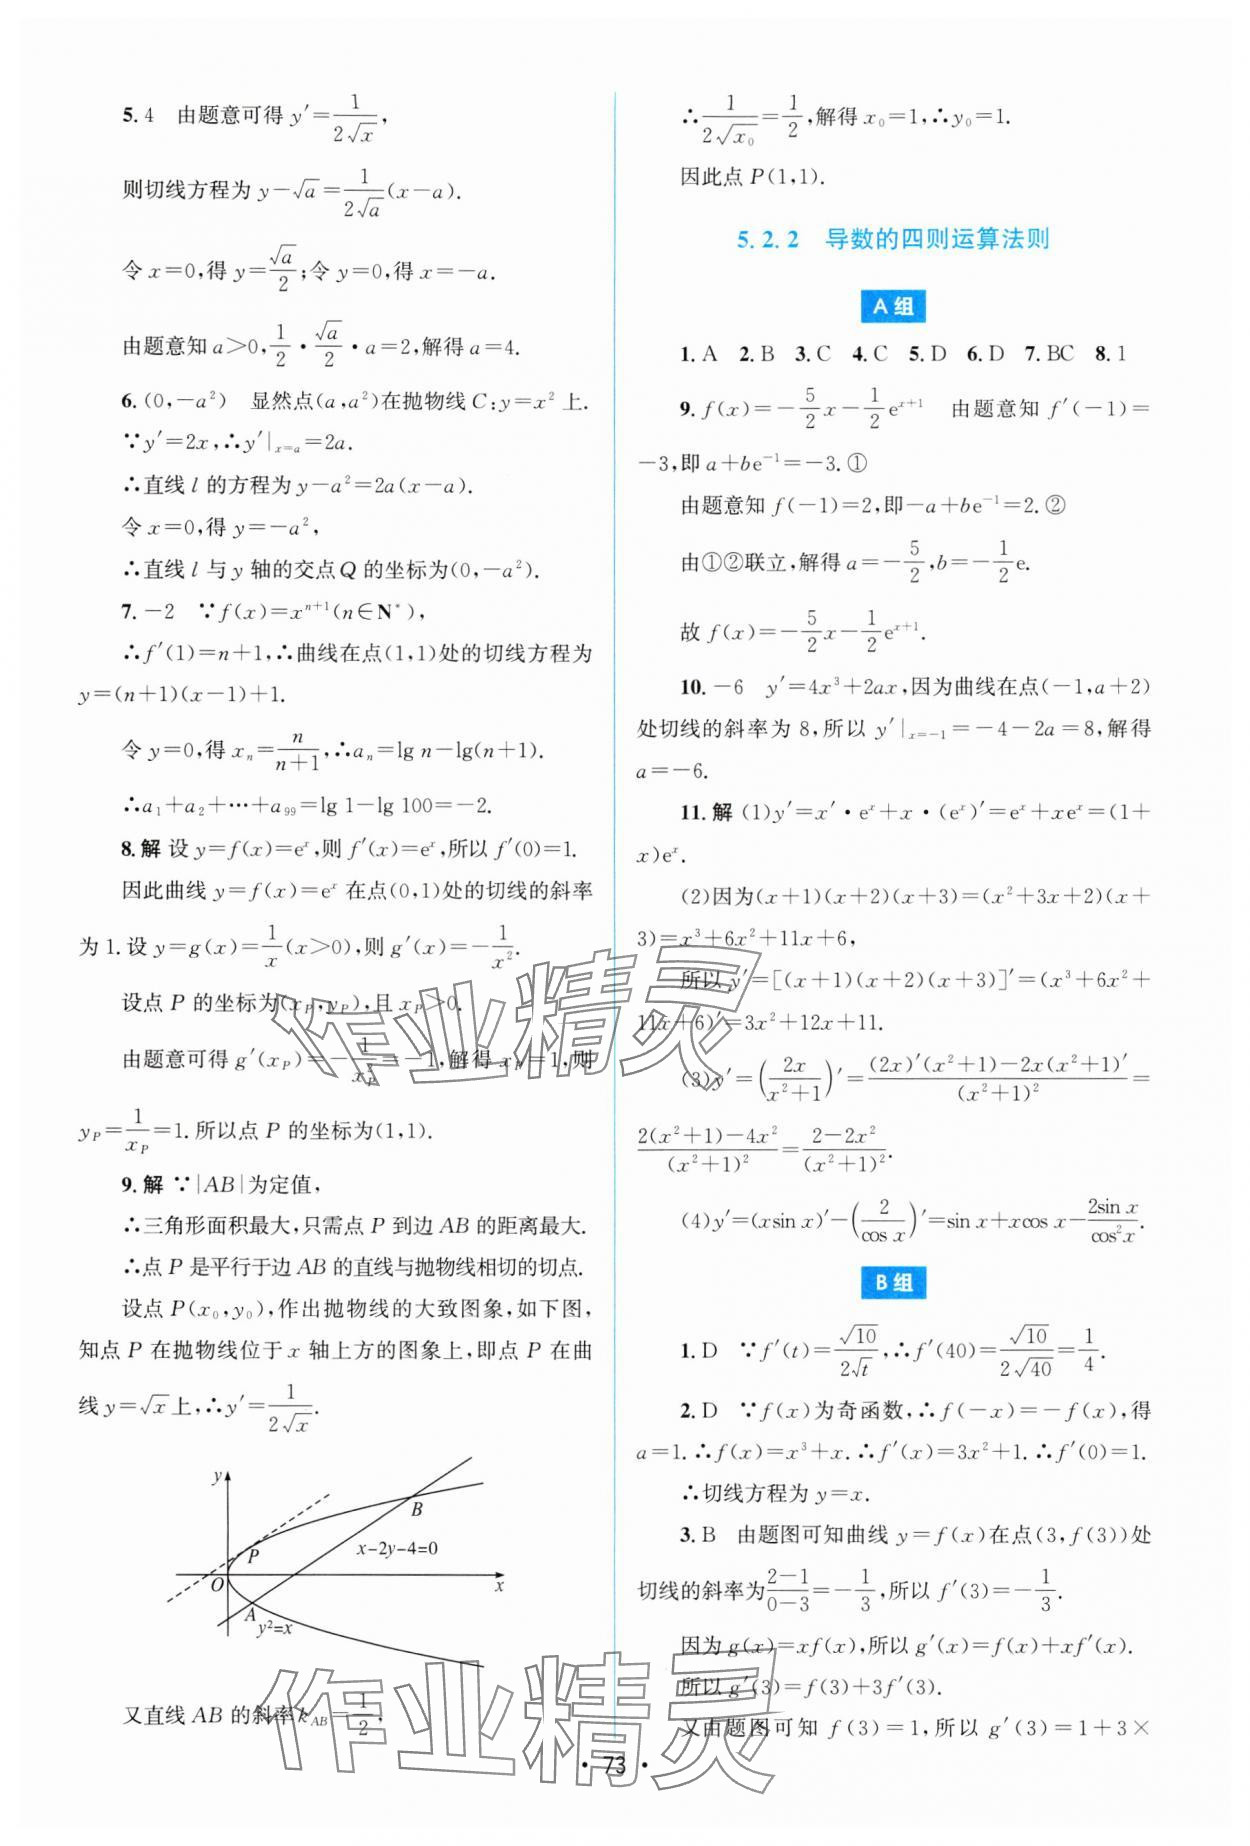 5. 4　由题意可得 y′=1/(2√x),
则切线方程为 y−√a=1/(2√a)(x−a).
令 x=0,得 y=√a/2;令 y=0,得 x=−a.
由题意知 a>0,1/2·√a/2·a=2,解得 a=4.
6. (0,−a²)　显然点(a,a²)在抛物线 C:y=x² 上.
∵y′=2x,∴y′|ₓ₌ₐ=2a.
∴直线 l 的方程为 y−a²=2a(x−a).
令 x=0,得 y=−a²,
∴直线 l 与 y 轴的交点 Q 的坐标为(0,−a²).
7. −2　∵f(x)=xⁿ⁺¹(n∈N*),
∴f′(1)=n+1,∴曲线在点(1,1)处的切线方程为
y=(n+1)(x−1)+1.
令 y=0,得 xₙ=n/(n+1),∴aₙ=lg n−lg(n+1).
∴a₁+a₂+⋯+a₉₉=lg 1−lg 100=−2.
8. 解 设 y=f(x)=eˣ,则 f′(x)=eˣ,所以 f′(0)=1.
因此曲线 y=f(x)=eˣ 在点(0,1)处的切线的斜率
为 1. 设 y=g(x)=1/x(x>0),则 g′(x)=−1/x².
设点 P 的坐标为(x_P,y_P),且 x_P>0.
由题意可得 g′(x_P)=−1/x_P²=−1,解得 x_P=1,则
y_P=1/x_P=1. 所以点 P 的坐标为(1,1).
9. 解 ∵|AB|为定值,
∴三角形面积最大,只需点 P 到边 AB 的距离最大.
∴点 P 是平行于边 AB 的直线与抛物线相切的切点.
设点 P(x₀,y₀),作出抛物线的大致图象,如下图,
知点 P 在抛物线位于 x 轴上方的图象上,即点 P 在曲
线 y=√x 上,∴y′=1/(2√x).
y
B
P
x−2y−4=0
O
x
A
y²=x
又直线 AB 的斜率 k_AB=1/2,
∴1/(2√x₀)=1/2,解得 x₀=1,∴y₀=1.
因此点 P(1,1).
5.2.2　导数的四则运算法则
A 组
1. A　2. B　3. C　4. C　5. D　6. D　7. BC　8. 1
9. f(x)=−5/2x−1/2eˣ⁺¹　由题意知 f′(−1)=
−3,即 a+be⁻¹=−3. ①
由题意知 f(−1)=2,即−a+be⁻¹=2. ②
由①②联立,解得 a=−5/2,b=−1/2e.
故 f(x)=−5/2x−1/2eˣ⁺¹.
10. −6　y′=4x³+2ax,因为曲线在点(−1,a+2)
处切线的斜率为 8,所以 y′|ₓ₌₋₁=−4−2a=8,解得
a=−6.
11. 解 (1)y′=x′·eˣ+x·(eˣ)′=eˣ+xeˣ=(1+
x)eˣ.
(2)因为(x+1)(x+2)(x+3)=(x²+3x+2)(x+
3)=x³+6x²+11x+6,
所以 y′=[(x+1)(x+2)(x+3)]′=(x³+6x²+
11x+6)′=3x²+12x+11.
(3)y′=(2x/(x²+1))′=((2x)′(x²+1)−2x(x²+1)′)/(x²+1)²=
(2(x²+1)−4x²)/(x²+1)²=(2−2x²)/(x²+1)².
(4)y′=(xsin x)′−(2/cos x)′=sin x+xcos x−2sin x/cos²x.
B 组
1. D　∵f′(t)=√10/(2√t),∴f′(40)=√10/(2√40)=1/4.
2. D　∵f(x)为奇函数,∴f(−x)=−f(x),得
a=1. ∴f(x)=x³+x. ∴f′(x)=3x²+1. ∴f′(0)=1.
∴切线方程为 y=x.
3. B　由题图可知曲线 y=f(x)在点(3,f(3))处
切线的斜率为(2−1)/(0−3)=−1/3,所以 f′(3)=−1/3.
因为 g(x)=xf(x),所以 g′(x)=f(x)+xf′(x).
所以 g′(3)=f(3)+3f′(3).
又由题图可知 f(3)=1,所以 g′(3)=1+3×
· 73 ·
作业精灵
作业精灵